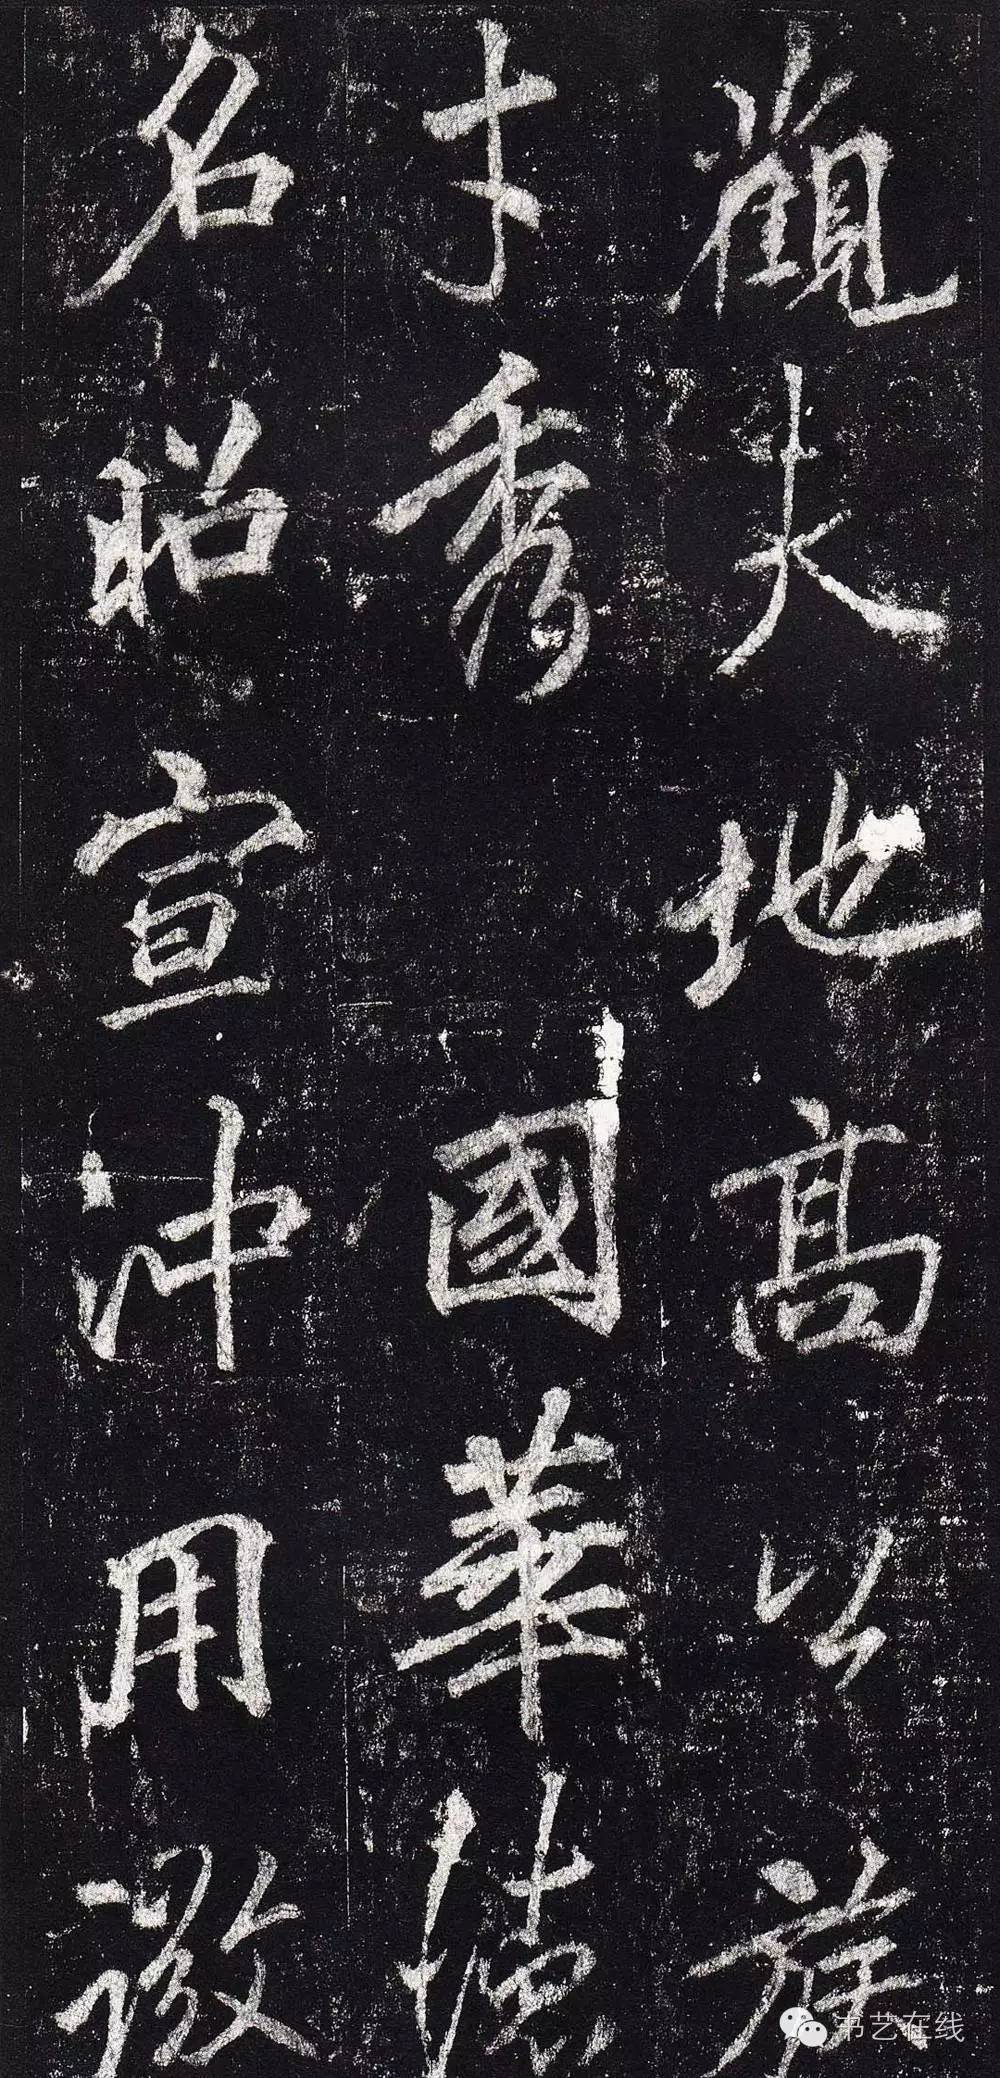 觀夫地高以族
才秀國華德
名昭宣冲用微
书艺在线